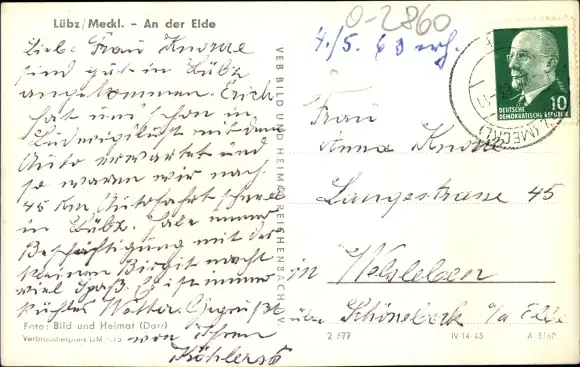 Lübz/Meckl. - An der Elde
0-2860
4./5. 63 erh.
Liebe Frau Knorre
sind gut in Lübz
angekommen. Erich
hat uns schon in
Ludwigslust mit dem
Auto erwartet und
so waren wir nach
45 km Autofahrt schnell
in Lübz. Die neue
Beschäftigung mit der
kleinen Birgit macht
viel Spaß. Es ist immer
kühles Wetter. Gegrüßt
von Ihren
Köhlers
Foto: Bild und Heimat (Darr)
Verbraucherpreis DM
VEB BILD UND HEIMAT REICHENBACH I. V.
10
DEUTSCHE
DEMOKRATISCHE REPUBLIK
(MECKL)
Frau
Anna Knorre
Langestrasse 45
in Welsleben
über Schönebeck a/d Elbe
2 677
IV-14-45
A 3/60